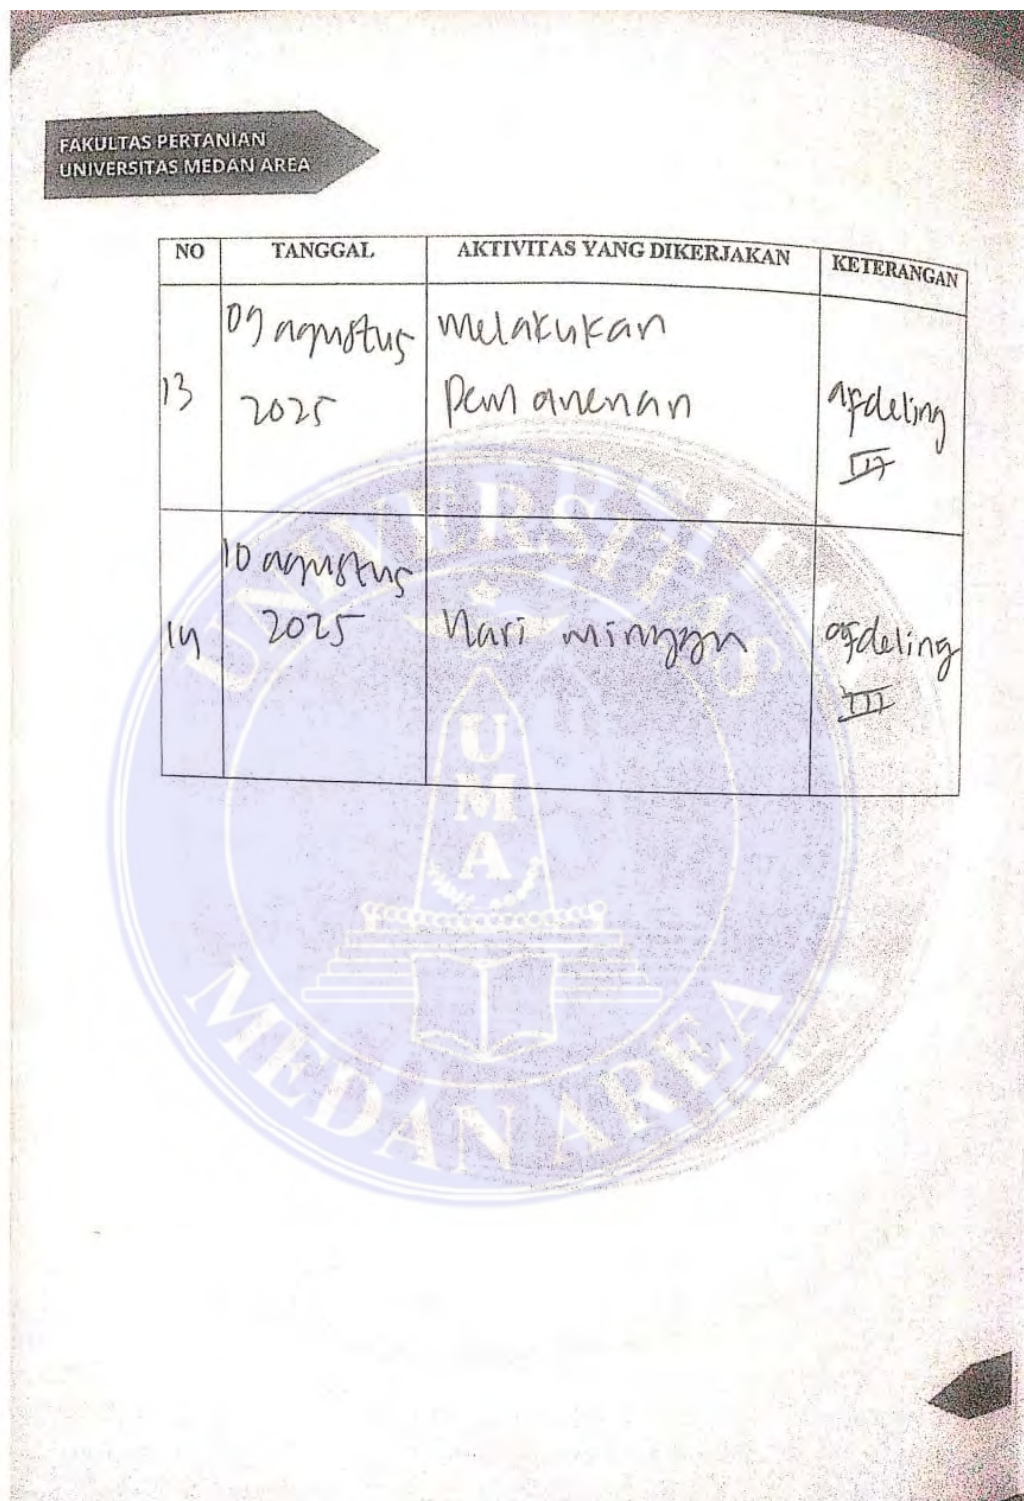 FAKULTAS PERTANIAN
UNIVERSITAS MEDAN AREA
NO TANGGAL AKTIVITAS YANG DIKERJAKAN KETERANGAN
13 09 agustus 2025 melakukan pemanenan afdeling III
14 10 agustus 2025 Hari minggu afdeling III
UNIVERSITAS
UMA
MEDAN AREA